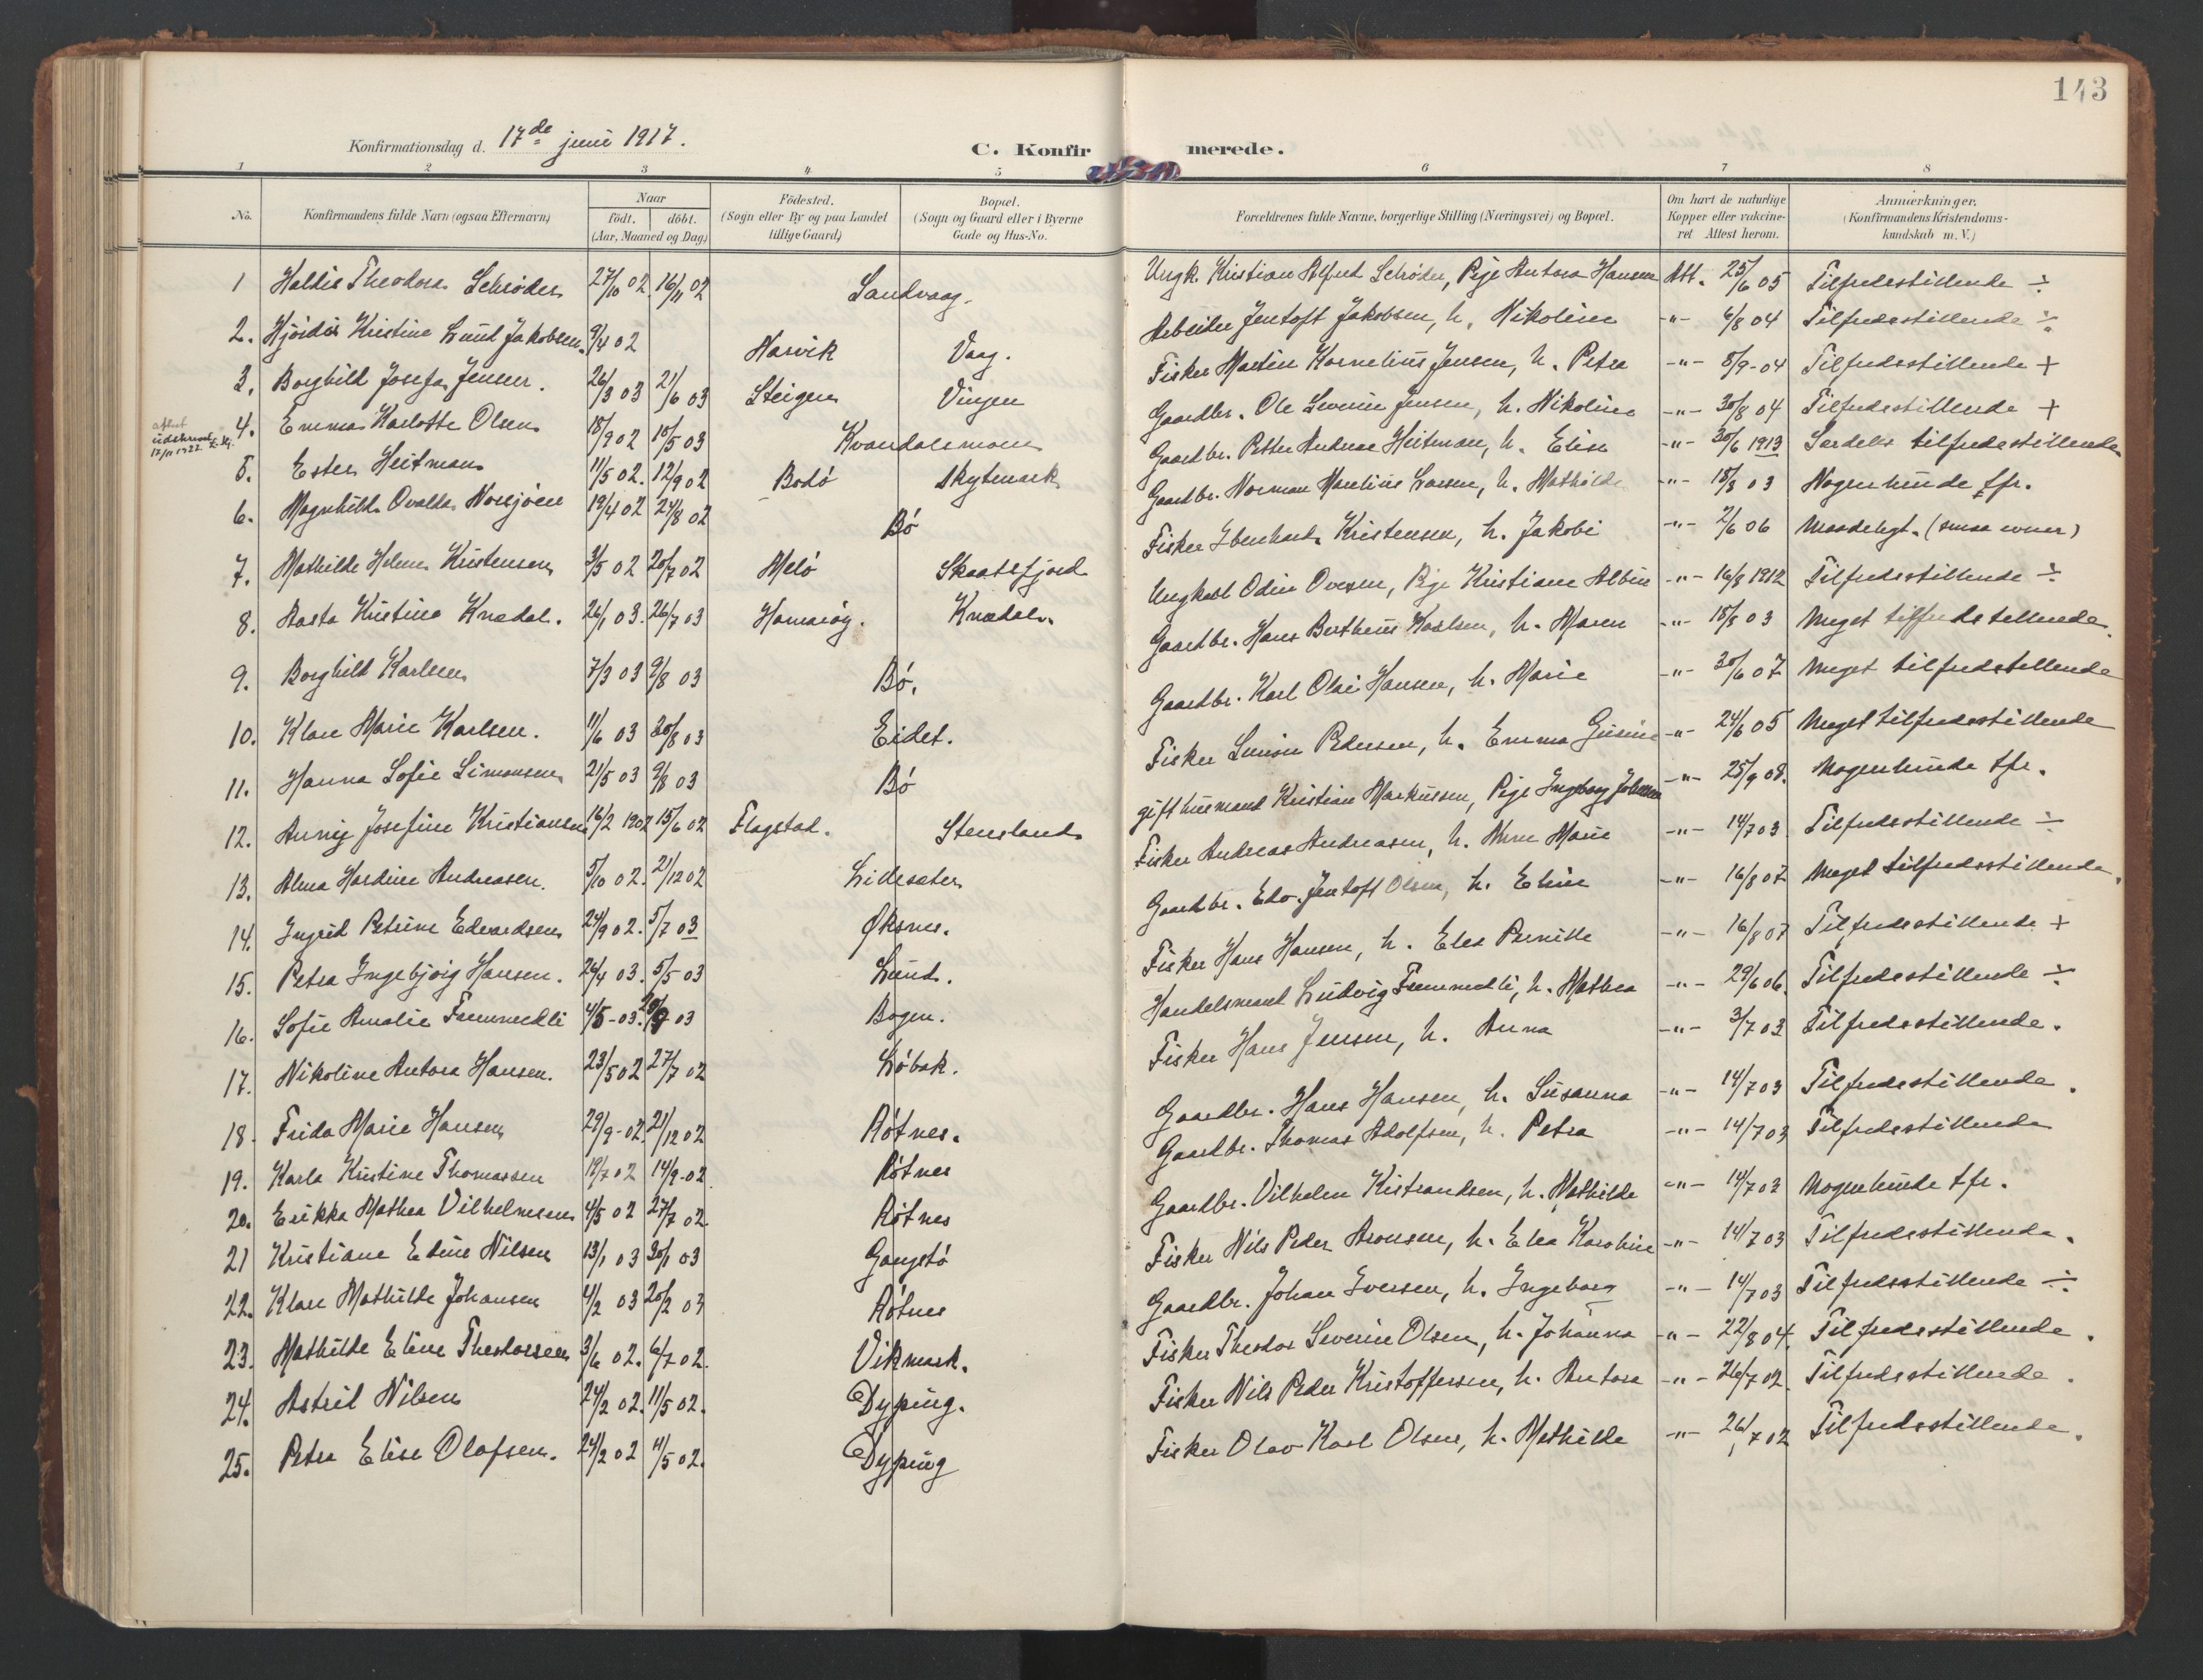 143
Konfirmationsdag d. 17de juni 1917.
C. Konfirmerede.
1 2 3 4 5 6 7 8
No. Konfirmandens fulde Navn (ogsaa Efternavn) Naar födt. döbt. (Aar, Maaned og Dag) Födested. (Sogn eller By og paa Landet tillige Gaard) Bopæl. (Sogn og Gaard eller i Byerne Gade og Hus-No. Forældrenes fulde Navne, borgerlige Stilling (Næringsvei) og Bopæl. Om havt de naturlige Kopper eller vakcineret Attest herom. Anmærkninger. (Konfirmandens Kristendomskundskab m. V.)
1 Haldis Theodora Schrøder 27/10 02. 16/11 02 Sandvaag. Ungk. Kristian Alfred Schrøder, Pige Antora Hansen Att. 25/6 05 Tilfredsstillende ÷
2. Hjördis Kristine Lund Jakobsen. 9/4 02 Narvik Vaag. Arbeider Jentoft Jakobsen, h. Nikoline -"- 6/8 04 Tilfredsstillende ÷
3. Borghild Josefa Jensen. 26/3 03 21/6 03 Steigen Vinjen Fisker Martin Kornelius Jensen, h. Petra -"- 8/9-04 Tilfredsstillende +
attest udskrevet 17/11 1922
4. Emma Karlotte Olsen 18/9 02 10/5 03 Kvandalsmoen Gaardbr. Ole Severin Jensen, h. Nikoline -"- 30/8 04 Tilfredsstillende +
5. Ester Heitman 11/5 02. 12/9 02 Bodö Skytmark Gaardbr. Petter Andreas Heitman, h. Elise -"- 30/6 1913 Særdeles tilfredsstillende
6. Magnhild Ovalda Norsjöen 19/4 02 24/8 02 Bö Gaardbr. Norman Marelius Larsen, h. Mathilde -"- 18/8 03 Nogenlunde tfr.
7. Mathilde Helene Kristensen 3/5 02 20/7 02 Melö Skaatsfjord Fisker Ebenhard Kristensen, h. Jakobi -"- 2/6 06 Maadeligt. (smaa evner)
8. Aasta Kristine Knædal. 26/1 03. 26/7 03 Hamarøy. Knædal. Ungkarl Odin Ovesen, Pige Kristiane Albin -"- 16/8 1912 Tilfredsstillende ÷
9. Borghild Karlsen 7/3 03 9/8 03 Bö. Gaardbr. Hans Bertheus Karlsen, h. Maren -"- 18/8 03 Meget tilfredsstellende.
10. Klara Marie Karlsen. 11/6 03 30/8 03 Eidet. Gaardbr. Karl Olai Hansen, h. Marie -"- 30/6 07 Meget tilfredsstellende
11. Hanna Sofie Simonsen 21/5 03 9/8 03 Bö Fisker Simon Pedersen, h. Emma Gusine -"- 24/6 05 Meget tilfredsstillende
12. Anny Josefine Kristiansen 16/2 1902 15/6 02 Flagstad. Stensland gift husmand Kristian Markussen, Pige Ingeborg Johansen -"- 25/9 08. Nogenlunde tfr.
13. Alma Hardine Andreasen. 5/10 02. 21/12 02 Lillesæter Fisker Andreas Andreasen, h. Anne Marie -"- 14/7 03 Tilfredsstillende ÷
14. Ingrid Petrine Edvardsen 24/9 02. 5/7 03 Øksnes. Gaardbr. Edv. Jentoft Olsen, h. Eline -"- 16/8 07 Meget tilfredsstillende.
15. Petra Ingebjörg Hansen. 24/4 03. 5/5 03 Lund. Fisker Hans Hansen, h. Elea Pernille -"- 16/8 07 Tilfredsstillende +
16. Sofie Amalie Fammedli 4/5-03. 20/9 03 Bogen. Handelsmand Ludvig Fammedli, h. Mathea -"- 29/6 06. Tilfredsstillende ÷
17. Nikoline Antora Hansen. 23/5 02 27/7 02 Löbak. Fisker Hans Jensen, h. Anna -"- 3/7 03 Tilfredsstillende.
18. Frida Marie Hansen 29/9-02. 21/12 02 Rötnes. Gaardbr. Hans Hansen, h. Susanna -"- 14/7 03 Tilfredsstillende.
19. Karla Kristine Thomassen 19/7 02 14/9-02 Rötnes Gaardbr. Thomas Adolfsen, h. Petra -"- 14/7 03 Tilfredsstillende
20. Erikka Mathea Vilhelmsen 4/5 02 27/7 02 Rötnes Gaardbr. Vilhelm Kistrandsen, h. Mathilde -"- 14/7 03 Nogenlunde tfr.
21 Kristiane Edine Nilsen 13/1 03 30/1 03 Gangstö Fisker Nils Peder Aronsen, h. Elea Karoline -"- 14/7 03 Tilfredsstillende.
22. Klara Mathilde Johansen 4/2 03 20/2 03 Rötnes Gaardbr. Johan Iversen, h. Ingeborg -"- 14/7 03 Tilfredsstillende ÷
23. Mathilde Eline Theodorsen 3/6 02. 6/7 02. Vikmark. Fisker Theodor Severin Olsen, h. Johanna -"- 22/8 04. Tilfredsstillende.
24. Astrid Nilsen 24/2 02. 11/5 02. Dyping. Fisker Nils Peder Kristoffersen, h. Antora -"- 26/7 02. Tilfredsstillende.
25. Petra Elise Olafsen. 24/2 02 11/5 02. Dyping Fisker Olav Karl Olsen, h. Mathilde -"- 26/7 02 Tilfredsstillende.